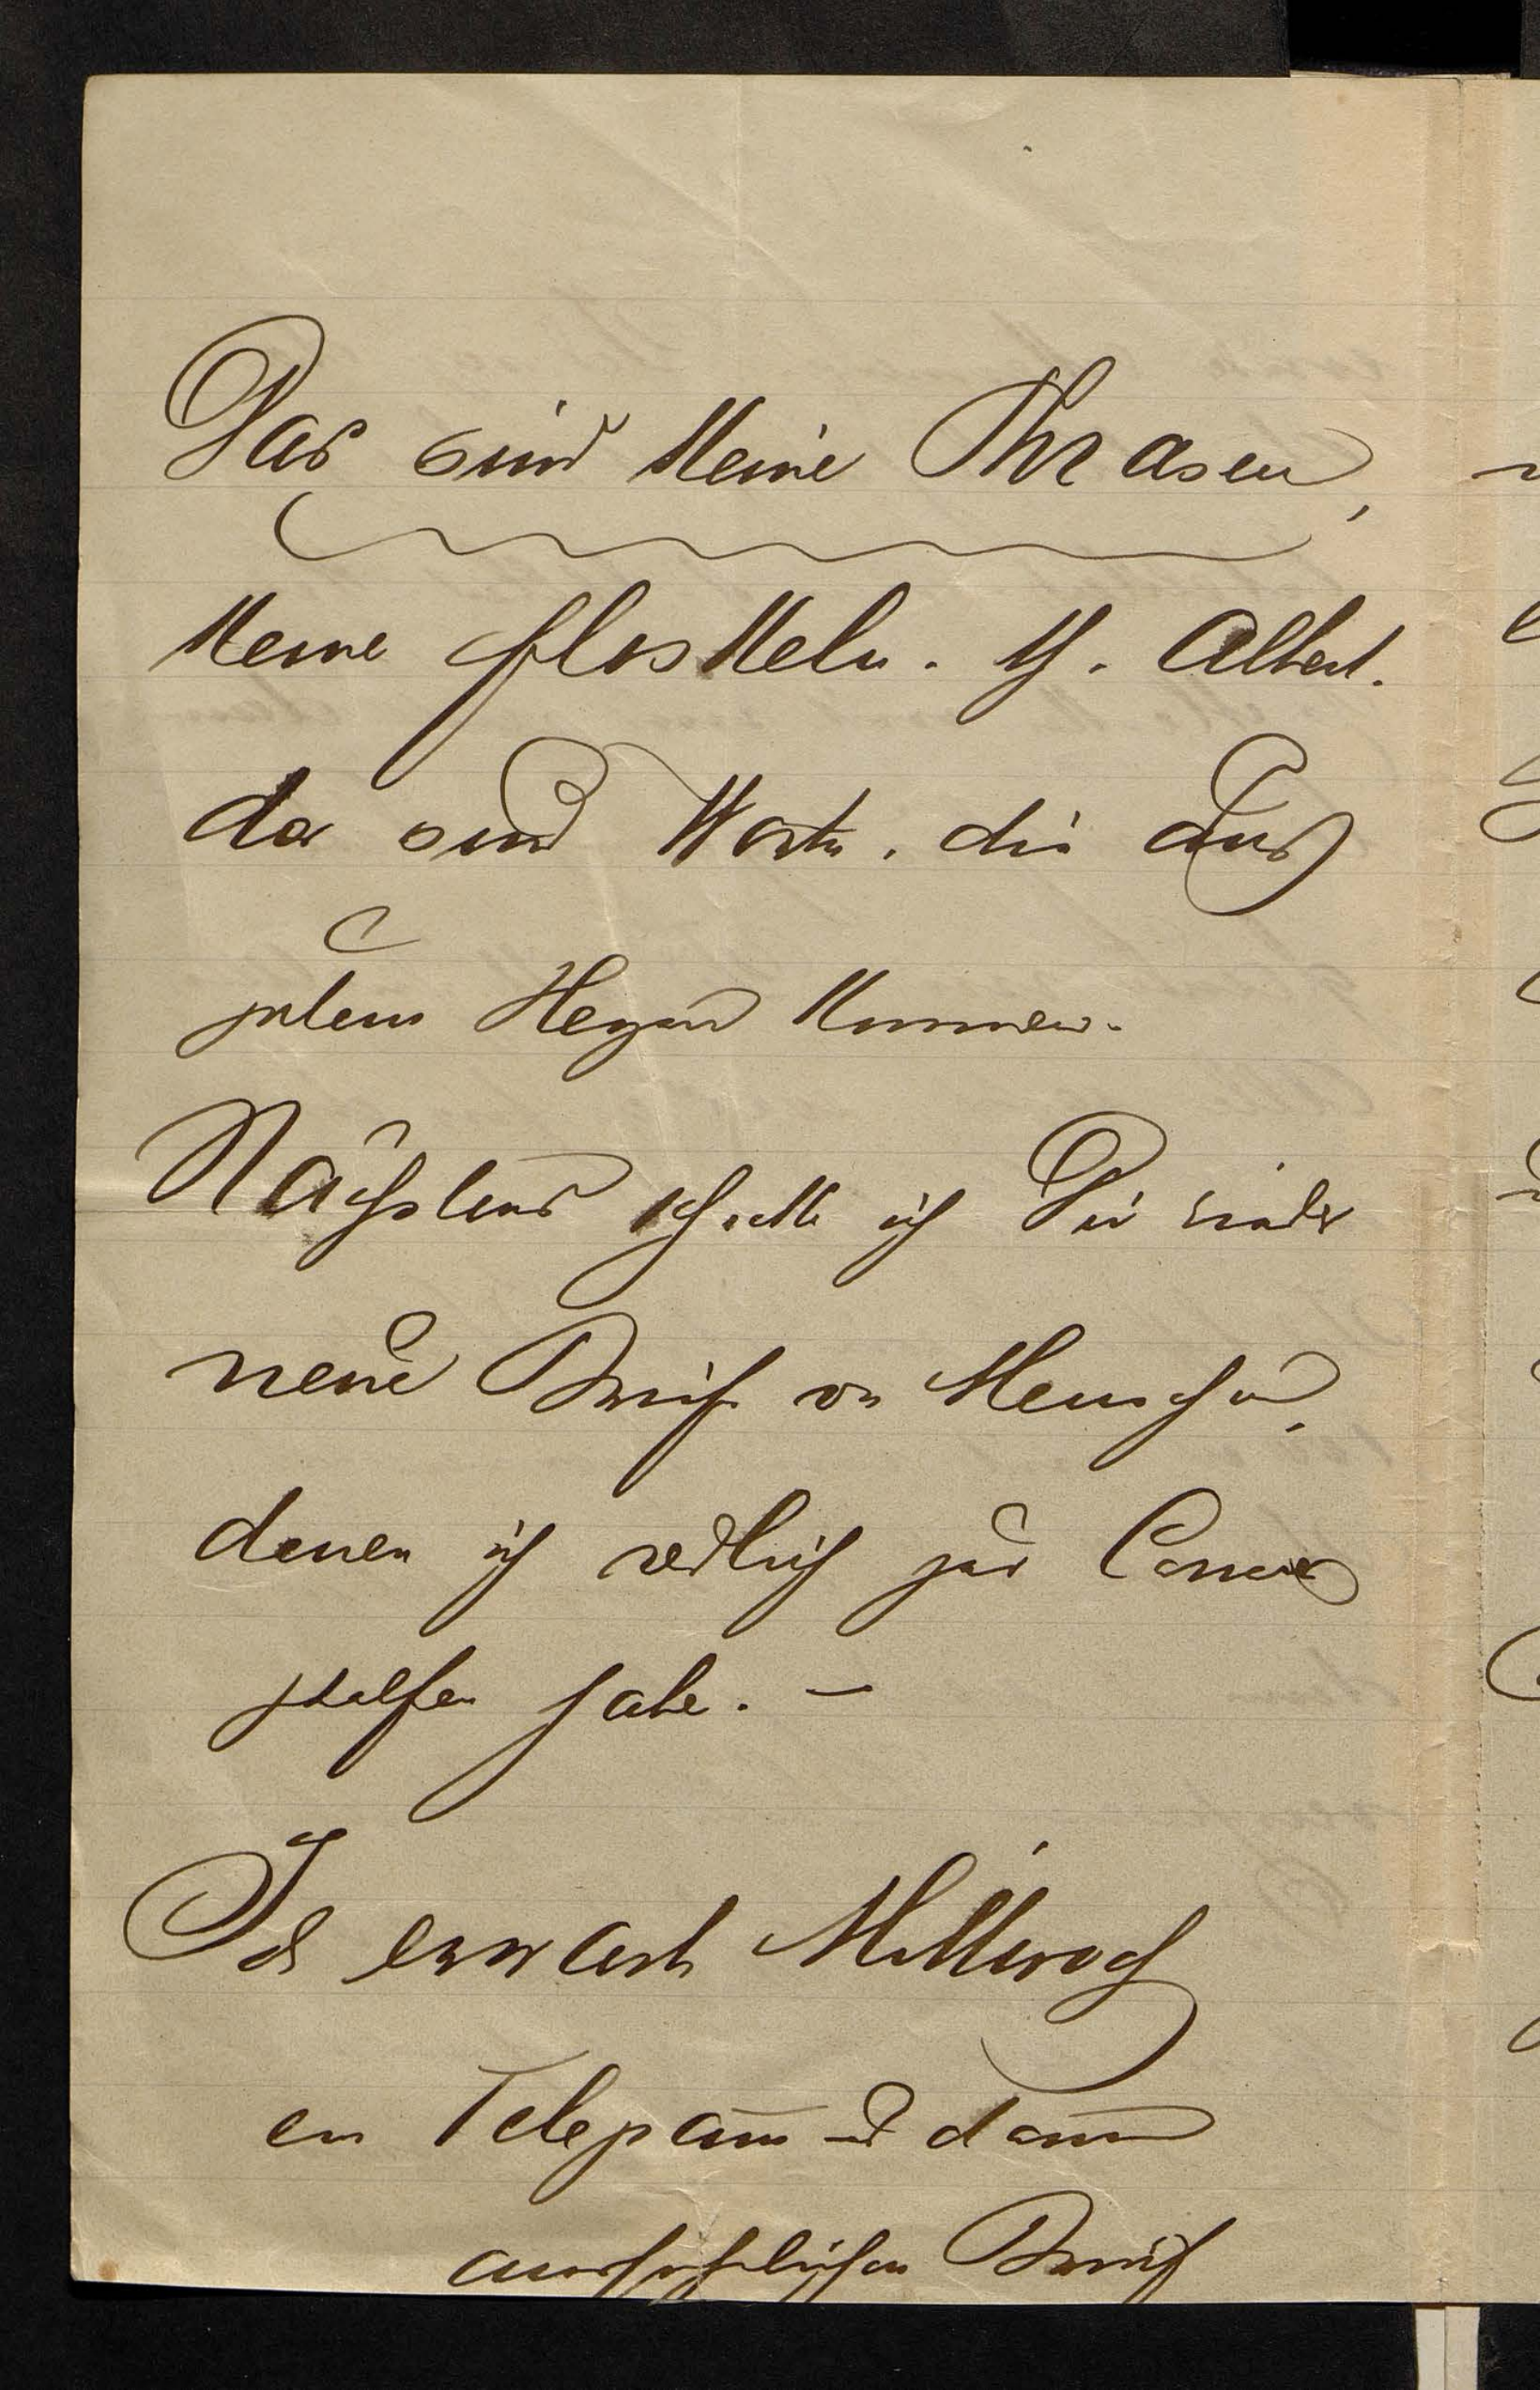 Das sind keine Phrasen,
keine Floskeln. Albert.
das sind Worte, die aus
gutem Herzen kommen.
Nächstens schicke ich Dir wieder
neue Briefe von Menschen,
denen ich redlich zur Carriere
geholfen habe. —
Ich erwarte Mittwoch
ein Telegramm und dann
ausführlichen Brief